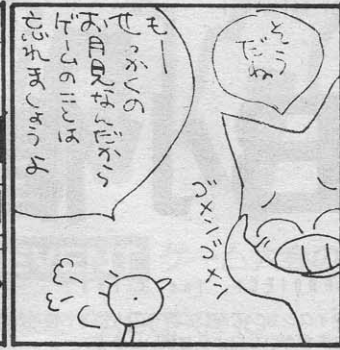 そう
だね
もー
せっかくの
お月見なんだから
ゲームのことは
忘れましょうよ
ゴメンゴメン